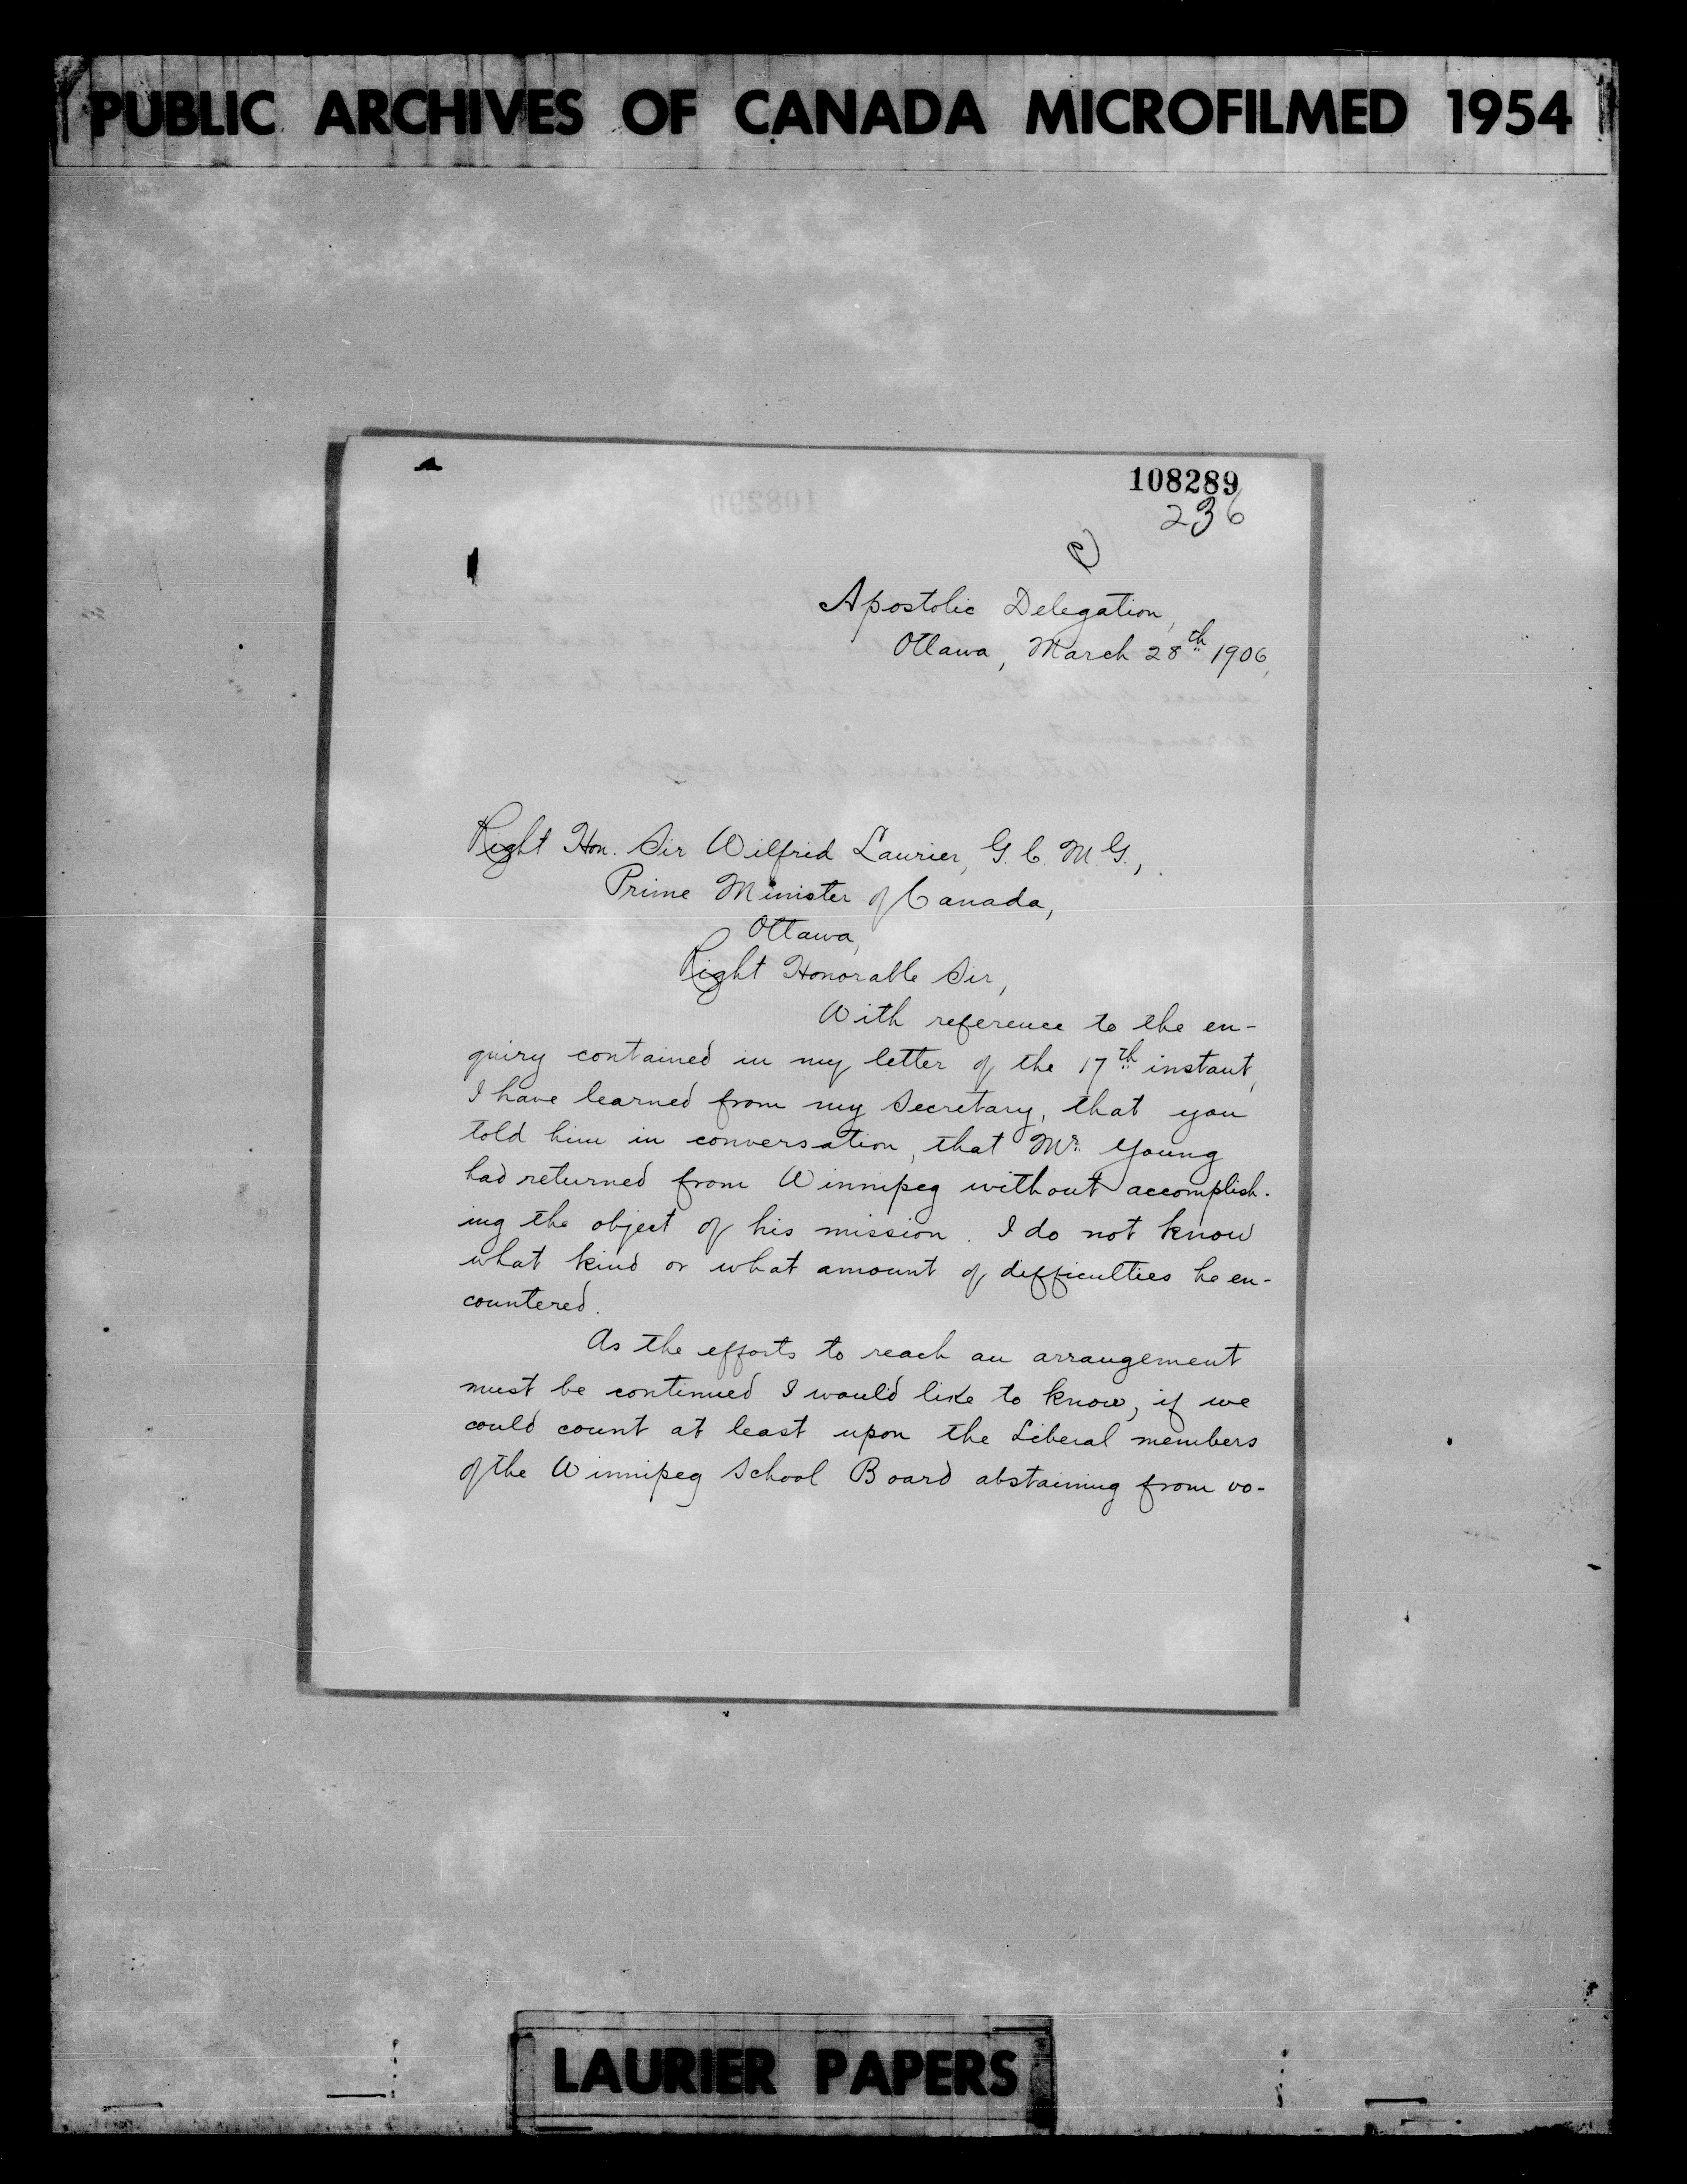 PUBLIC ARCHIVES OF CANADA MICROFILMED 1954
108289
236
Apostolic Delegation,
Ottawa, March 28th 1906,
Right Hon. Sir Wilfrid Laurier, G. C. M. G.,
Prime Minister of Canada,
Ottawa,
Right Honorable Sir,
With reference to the en-
quiry contained in my letter of the 17th instant,
I have learned from my Secretary, that you
told him in conversation, that Mr. Young
had returned from Winnipeg without accomplish-
ing the object of his mission. I do not know
what kind or what amount of difficulties he en-
countered.
As the efforts to reach an arrangement
must be continued I would like to know, if we
could count at least upon the Liberal members
of the Winnipeg School Board abstaining from vo-
LAURIER PAPERS